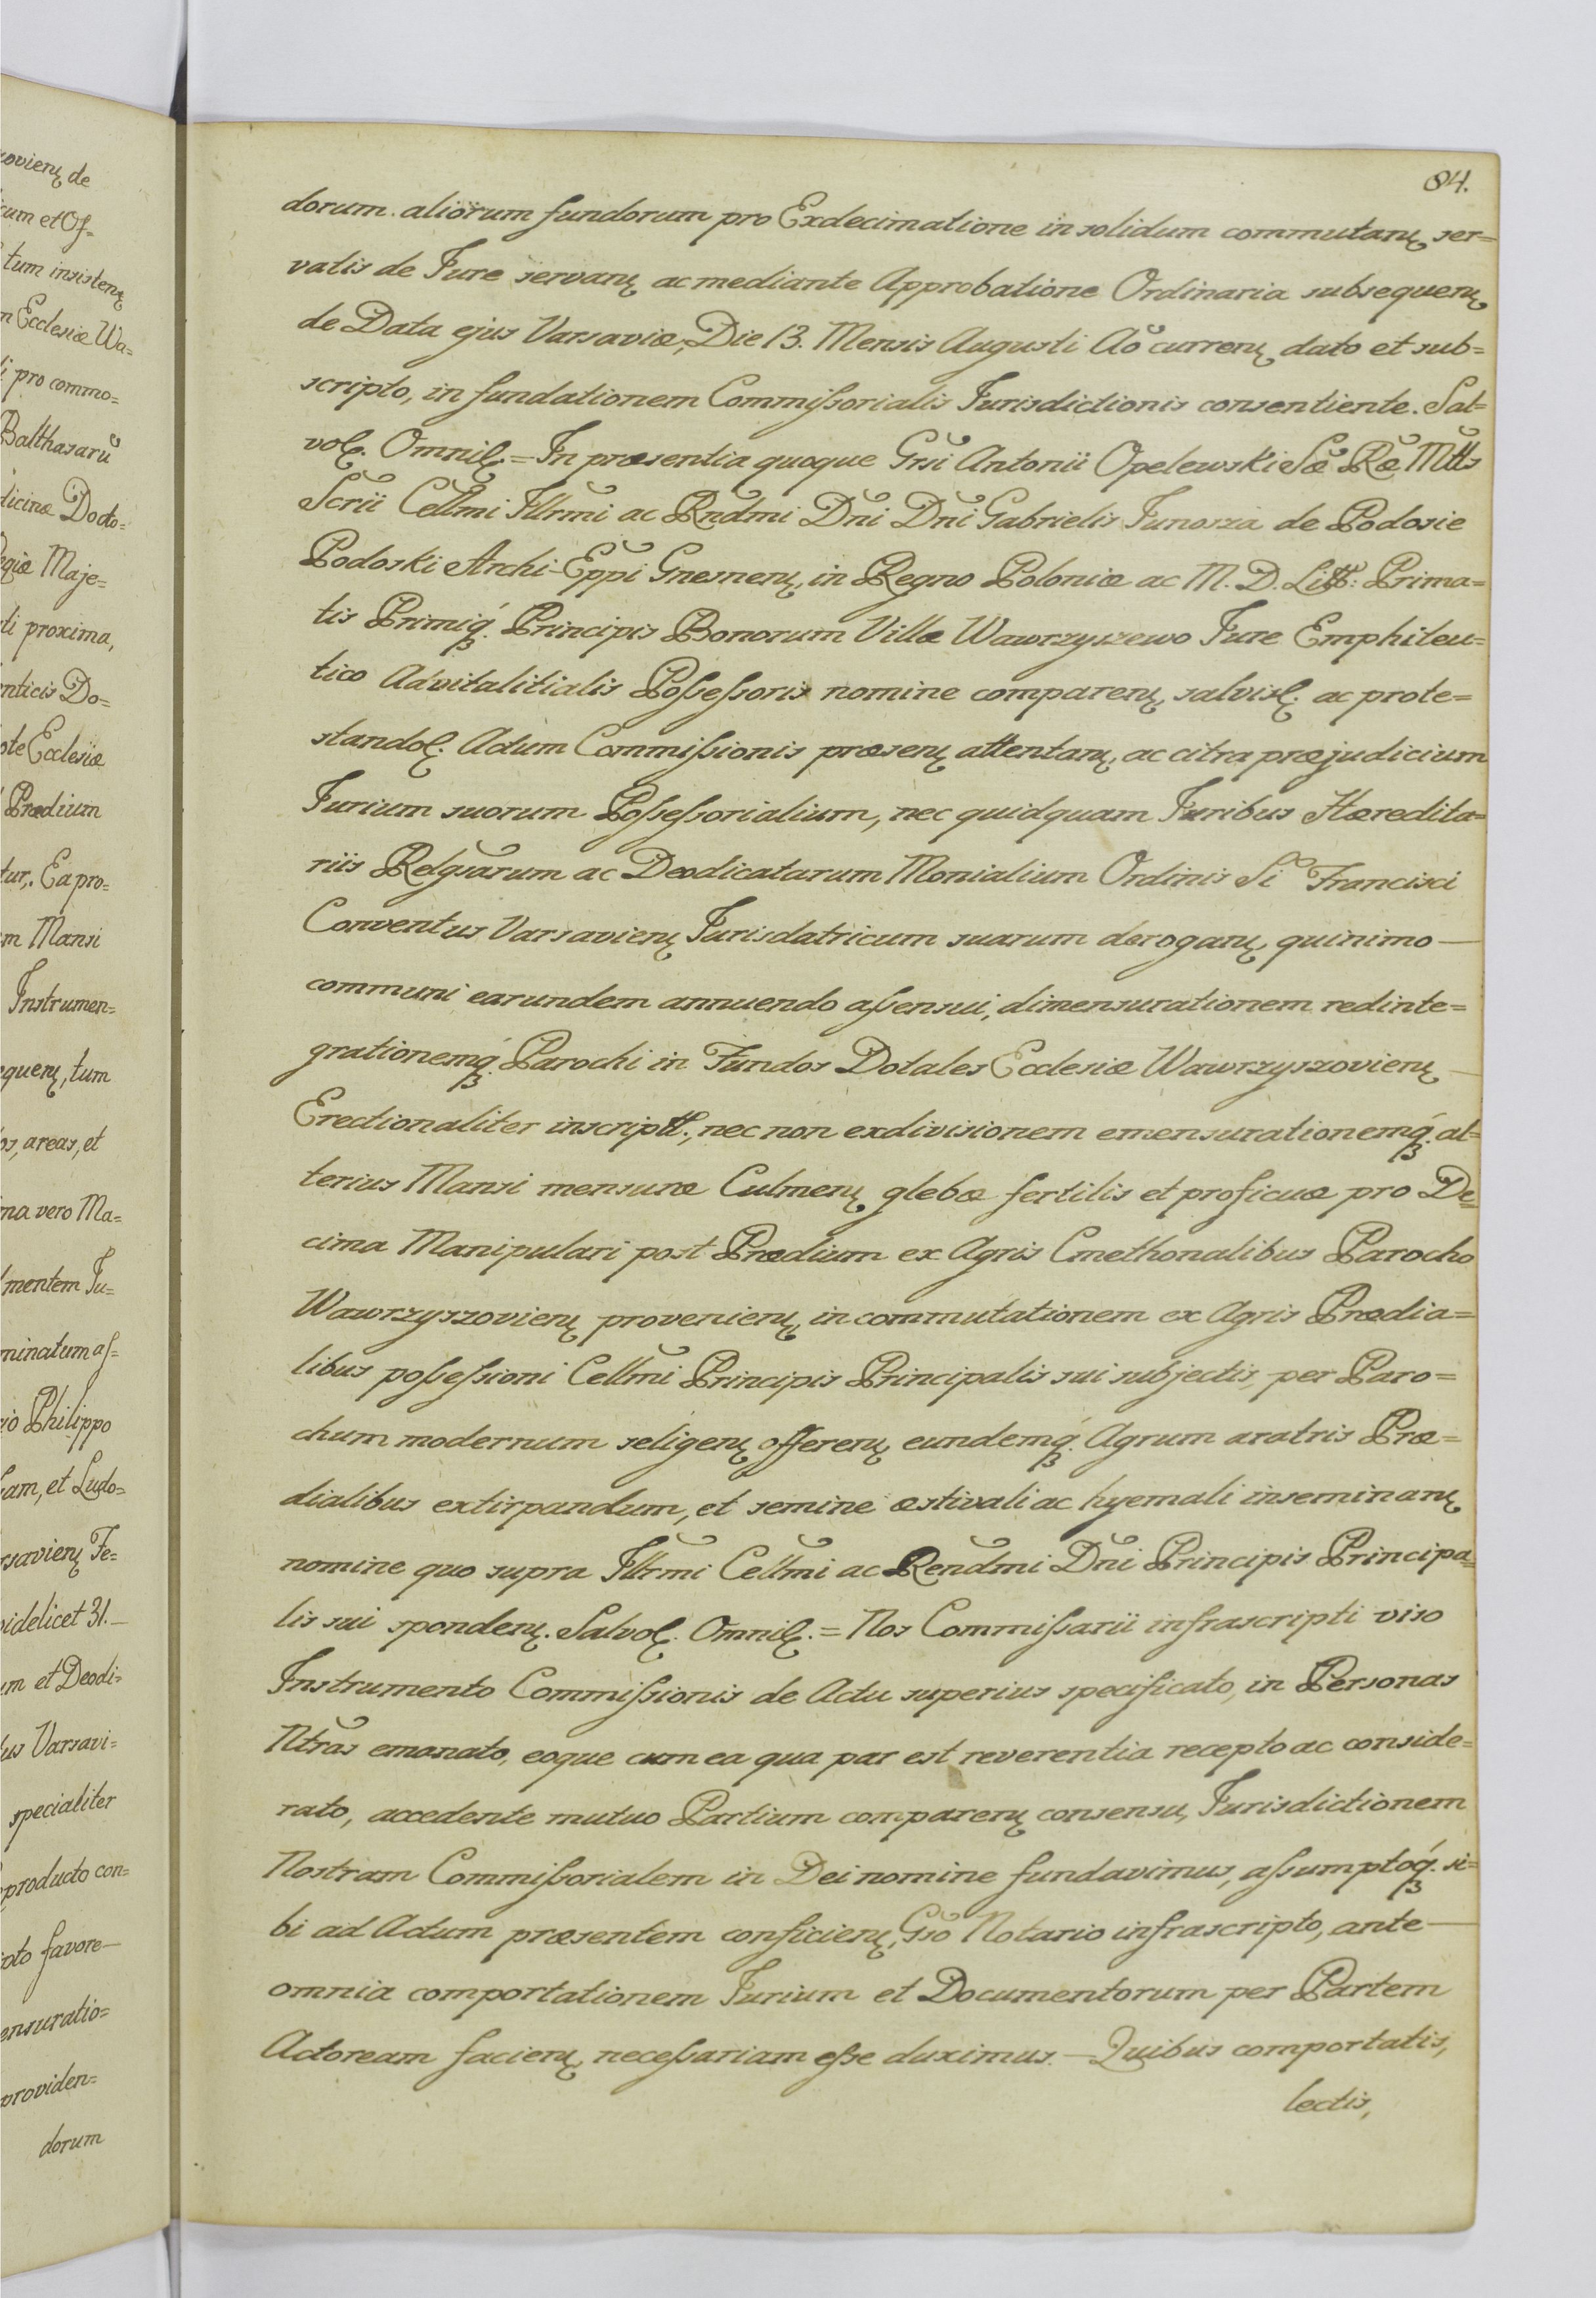 84.
dorum aliorum fundorum pro Exdecimatione in solidum commutan⟨ser=
vatis de Jure servan⟨ ac mediante Approbatione Ordinaria subsequen⟨
de Data ejus Varsaviæ, Die 13. Mensis Augusti Aõ curren⟨ dato et sub=
scripto, in fundationem Commissorialis Jurisdictionis consentiente. Sal=
voq. Omniq. = In præsentia quoque Grsi Antonii Opelewski Sæ Ræ Mtts
Scrii Cellmi Jllrmi ac Rndmi Dni Dni Gabrielis Junosza de Podosie
Podoski Archi-Eppi Gnesnen⟨ in Regno Poloniæ ac M. D. Litt: Prima=
tis Primiq́ꝫ Principis Bonorum Villæ Wawrzyszewo Jure Emphiteu=
tico Advitalitialis Possessoris nomine comparen⟨ salvisq. ac prote=
standoq. Actum Commissionis præsen⟨ attentan⟨, ac citra præjudicium
Jurium suorum Possessorialium, nec quidquam Juribus Hæredita=
riis Relgsarum ac Deodicatarum Monialium Ordinis Si Francisci
Conventus Varsavien⟨ Jurisdatricum suarum derogan⟨ quinimo
communi earundem annuendo assensui, dimensurationem redinte=
grationemq́ꝫ Parochi in Fundos Dotales Ecclesiæ Wawrzyszovien⟨
Erectionaliter inscriptt., nec non exdivisionem emensurationemq́ꝫ al=
terius Mansi mensuræ Culmen⟨ glebæ fertilis et proficuæ pro De=
cima Manipulari post Prædium ex Agris Cmethonalibus Parocho
Wawrzyszovien⟨ provenien⟨ in commutationem ex Agris Prædia=
libus possessioni Cellmi Principis Principalis sui subjectis, per Paro=
chum modernum seligen⟨ offeren⟨ eundemq́ꝫ Agrum aratris Præ=
dialibus extirpandum, et semine æstivali ac hyemali inseminan⟨
nomine quo supra Jllrmi Cellmi ac Rendmi Dni Principis Principa=
lis sui sponden⟨. Salvoq. Omniq. = Nos Commissarii infrascripti viso
Instrumento Commissionis de Actu superius specificato, in Personas
Ntras emanato, eoque cum ea qua par est reverentia recepto ac conside=
rato, accedente mutuo Partium comparen⟨ consensu, Jurisdictionem
Nostram Commissorialem in Dei nomine fundavimus, assumptoq́ꝫ si=
bi ad Actum præsentem conficien⟨, Gso Notario infrascripto, ante
omnia comportationem Jurium et Documentorum per Partem
Actoream facien⟨ necessariam esse duximus. — Quibus comportatis,
lectis,